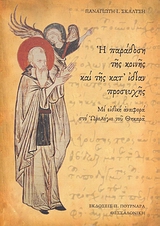 ΠΑΝΑΓΙΩΤΗ Ι. ΣΚΑΛΤΣΗ
Ἡ παράδοση
τῆς κοινῆς
καί τῆς κατ᾽ ἰδίαν
προσευχῆς
Μέ εἰδική ἀναφορά
στό Ὡρολόγιο τοῦ Θηκαρᾶ
ΕΚΔΟΣΕΙΣ Π. ΠΟΥΡΝΑΡΑ
ΘΕΣΣΑΛΟΝΙΚΗ